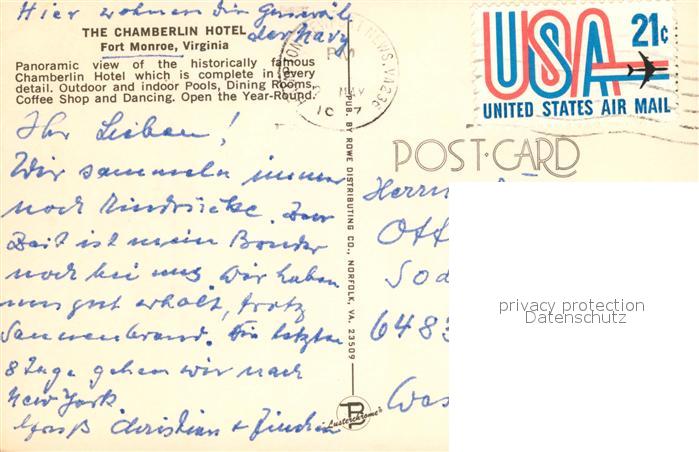 Hier wohnen die Generäle
der Navy
THE CHAMBERLIN HOTEL
Fort Monroe, Virginia
Panoramic view of the historically famous
Chamberlin Hotel which is complete in every
detail. Outdoor and indoor Pools, Dining Rooms,
Coffee Shop and Dancing. Open the Year-Round.
Ihr Lieben!
Wir sammeln immer
noch Eindrücke. Zur
Zeit ist mein Bruder
noch bei uns. Wir haben
uns gut erholt, trotz
Sonnenbrand. Die letzten
8 Tage gehen wir nach
New York
Gruß Christian +
PUB. BY ROWE DISTRIBUTING CO., NORFOLK, VA. 23509
Lusterchrome
NEWS, VA 236
PM
MAY
USA 21c
UNITED STATES AIR MAIL
POST-CARD
Herrn
Ott
Sod
6483
Was
privacy protection
Datenschutz